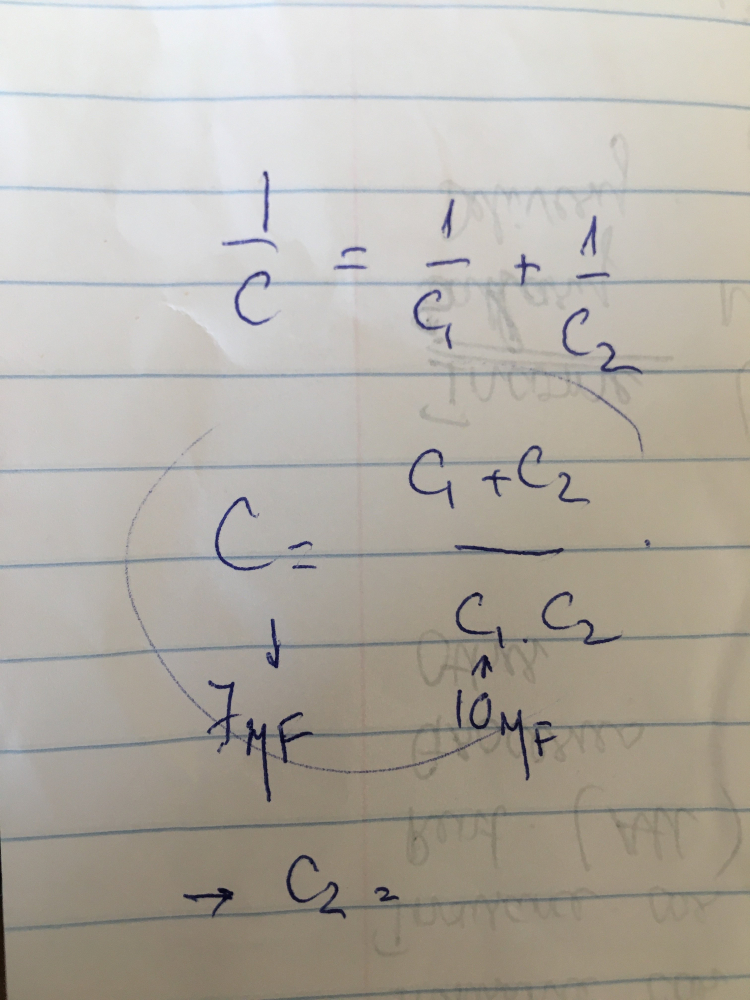 1/C = 1/C₁ + 1/C₂
C = C₁ + C₂ / C₁ . C₂
↓ ↑
7μF 10μF
→ C₂ =